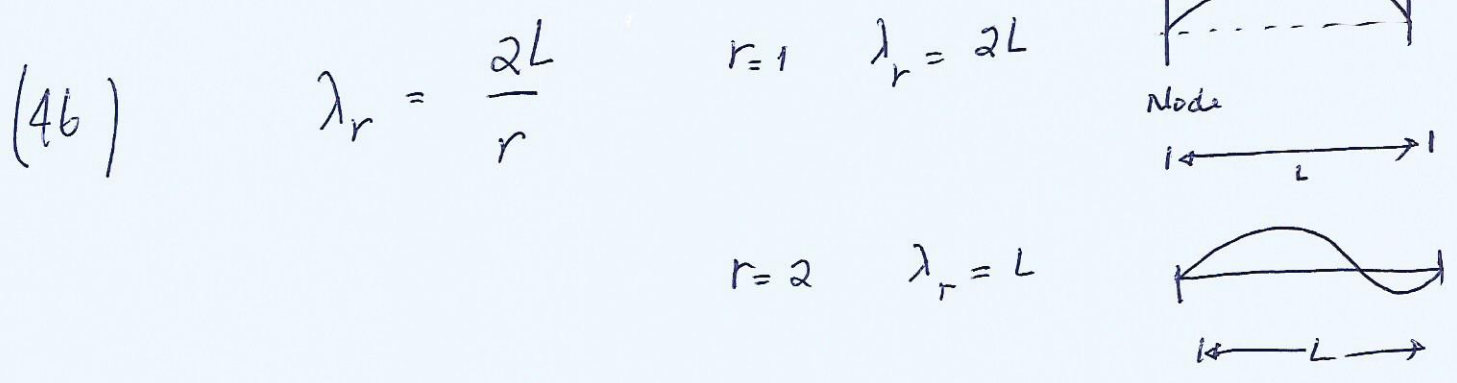 (46) λ_r = 2L/r r=1 λ_r = 2L
Node
L
r=2 λ_r = L
L